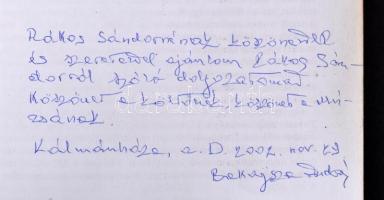 Rákos Sándornénak köszönettel
és szeretettel ajánlom Rákos Sán-
dorról szóló dolgozatomat.
Köszönet a költőnek, köszönet a mú-
zsának.
Kálmánháza, a. D. 2002. nov. 29